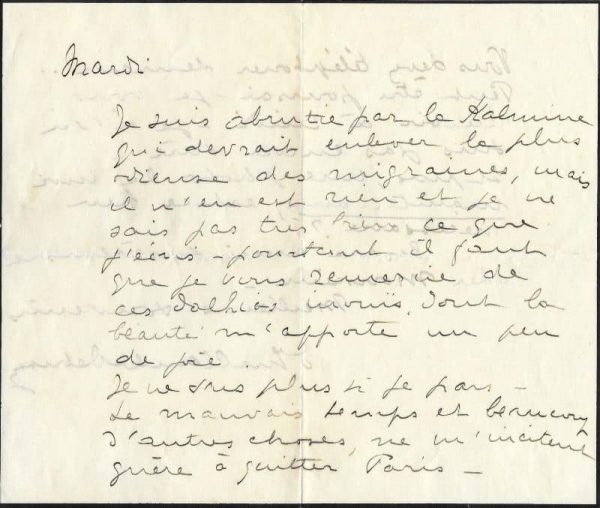 Mardi
Je suis abrutie par la Kalmine
qui devrait enlever la plus
odieuse des migraines, mais
il n'en est rien et je ne
sais pas très bien ce que
j'écris - pourtant il faut
que je vous remercie de
ces dahlias inouïs, dont la
beauté m'apporte un peu
de joie.
Je ne sais plus si je pars -
Le mauvais temps et beaucoup
d'autres choses, ne m'incitent
guère à quitter Paris -